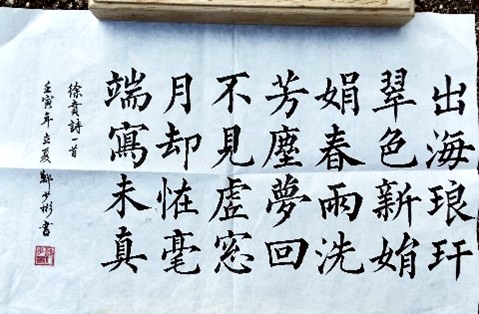 出海琅玕
翠色新娟
娟春雨洗
芳塵夢回
不見虛窓
月却恠毫
端寫未真
徐賁詩一首
壬寅年立夏鄭少彬書